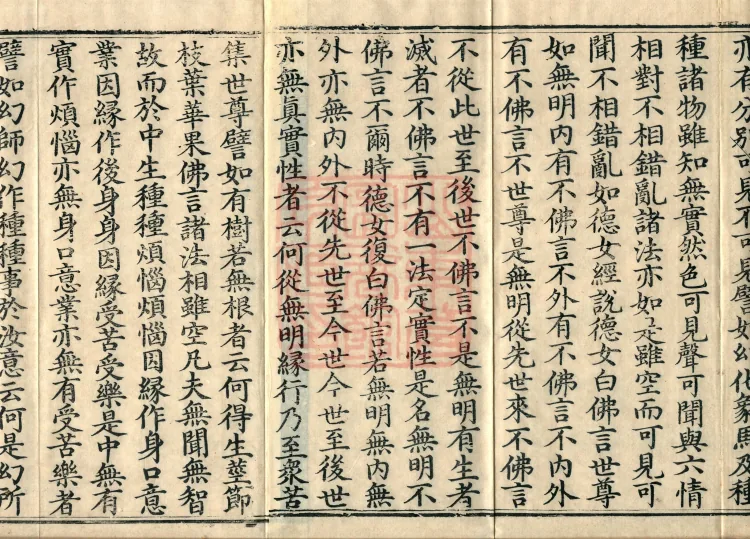 亦有分別可見不可見譬如幻化象馬及種
種諸物雖知無實然色可見聲可聞與六情
相對不相錯亂諸法亦如是雖空而可見可
聞不相錯亂如德女經說德女白佛言世尊
如無明內有不佛言不外有不佛言不內外
有不佛言不世尊是無明從先世來不佛言
不從此世至後世不佛言不是無明有生者
滅者不佛言不有一法定實性是名無明不
佛言不爾時德女復白佛言若無明無內無
外亦無內外不從先世至今世今世至後世
亦無眞實性者云何從無明緣行乃至衆苦
集世尊譬如有樹若無根者云何得生莖節
枝葉華果佛言諸法相雖空凡夫無聞無智
故而於中生種種煩惱煩惱因緣作身口意
業因緣作後身身因緣受苦受樂是中無有
實作煩惱亦無身口意業亦無有受苦樂者
譬如幻師幻作種種事於汝意云何是幻所